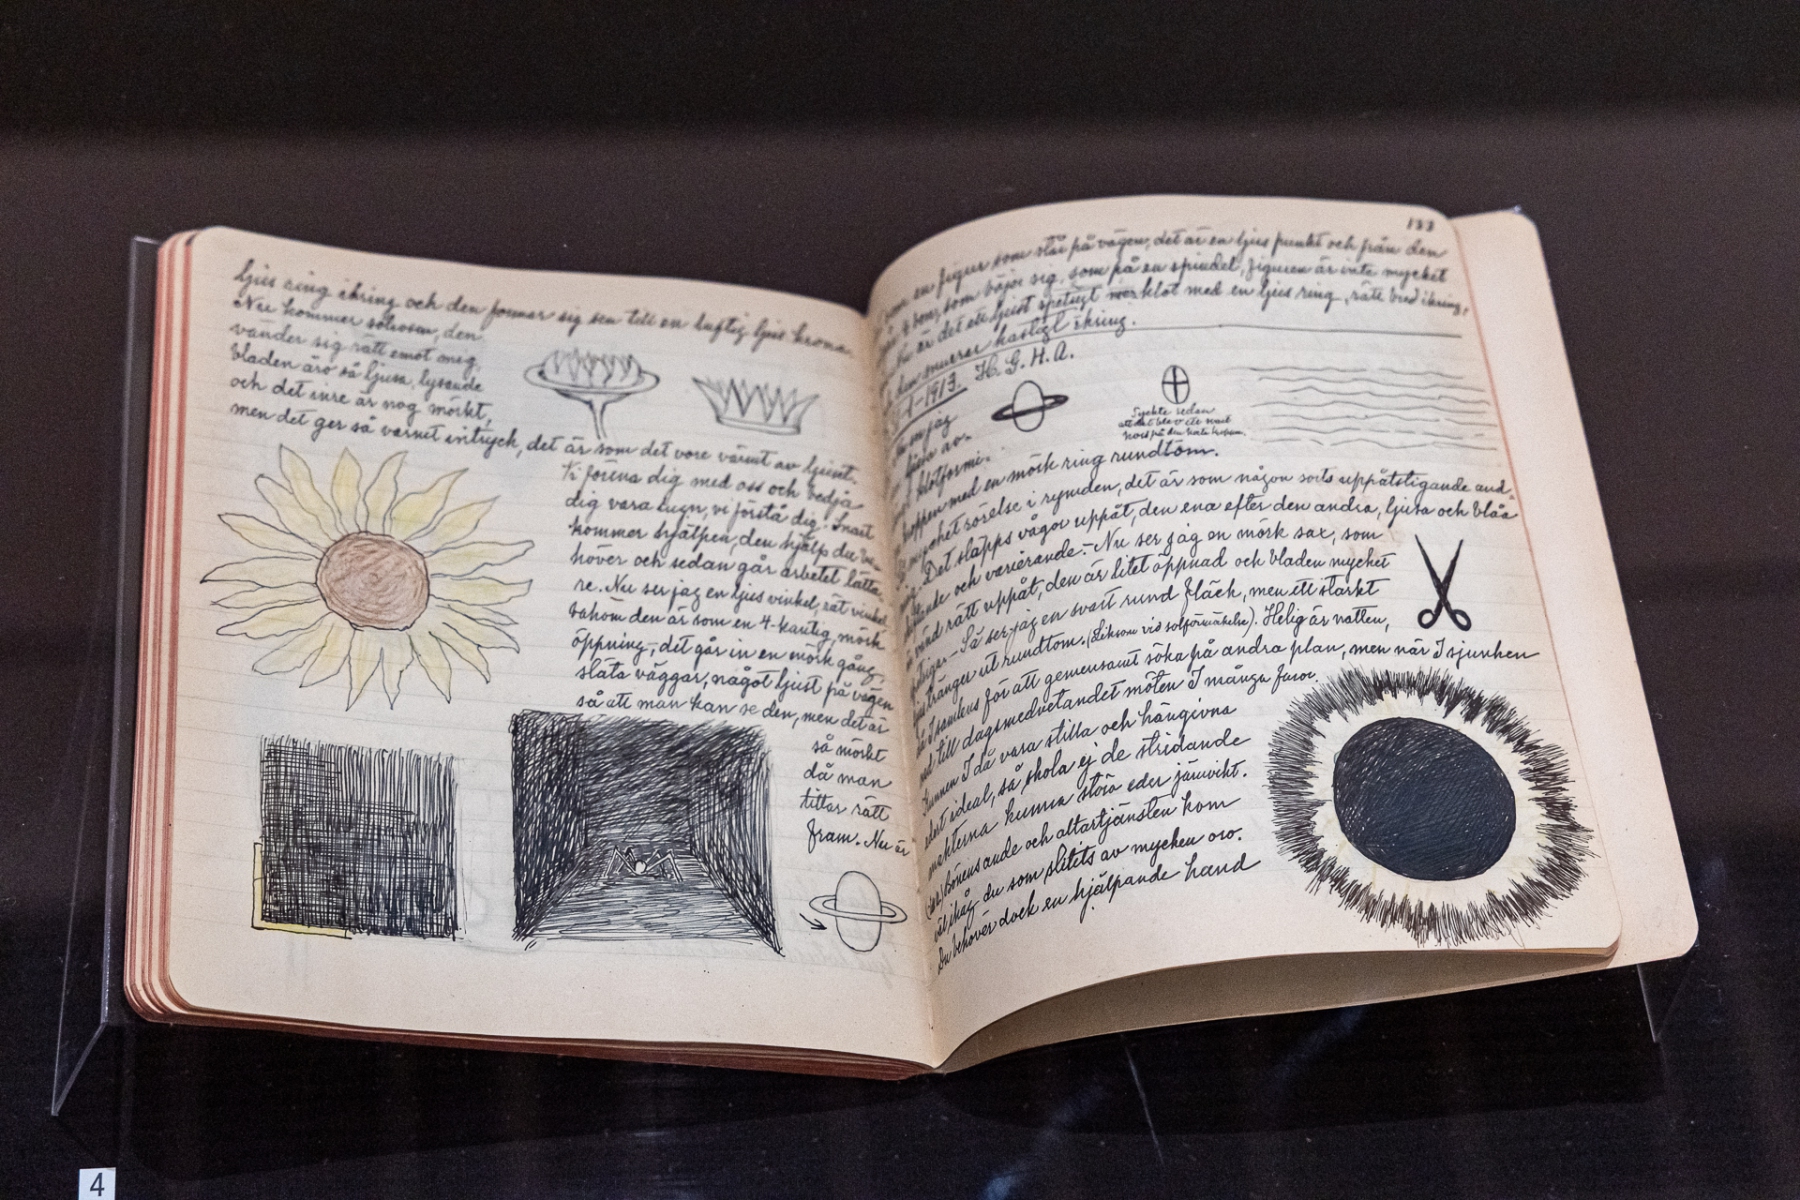 ljus ring ikring och den formar sig sen till en luftig ljus krona.
Nu kommer solrosen, den
vänder sig rätt emot mig,
bladen äro så ljusa, lysande
och det inre är nog mörkt,
men det ger så varmt intryck, det är som det vore värmt av ljuset.
Vi förena dig med oss och bedja
dig vara lugn, vi förstå dig. Snart
kommer hjälpen, den hjälp du be-
höver och sedan går arbetet lätta-
re. Nu ser jag en ljus vinkel, rät vinkel
bakom den är som en 4-kantig, mörk
öppning, det går in en mörk gång,
släta väggar, något ljust på vägen
så att man kan se den, men det är
så mörkt
då man
tittar rätt
fram. Nu är
133
en figur som står på vägen, det är en ljus punkt och från den
ben, som böjer sig, som på en spindel, figuren är inte mycket
Nu är det ett ljust spetsigt klot med en ljus ring, rätt bred ikring,
den snurrar hastigt ikring.
-1-1913. H. G. H. A.
ser jag
klotformi-
Tyckte sedan
att det blev ett
kroppen med en mörk ring rundtom.
rörelse i rymden, det är som någon sorts uppåtstigande and-
Det släpps vågor uppåt, den ena efter den andra, ljusa och blåa
och varierande. - Nu ser jag en mörk sax, som
vänd rätt uppåt, den är litet öppnad och bladen mycket
- Så ser jag en svart rund fläck, men ett starkt
tränger ut rundtom. (Liksom vid solförmörkelse). Helig är natten,
då I samlens för att gemensamt söka på andra plan, men när I sjunken
ned till dagsmedvetandet möten I många faror.
Kunnen I då vara stilla och hängivna
edert ideal, så skola ej de stridande
makterna kunna störa eder jämvikt.
bönens ande och altartjänsten kom
väl ihåg du som slitits av mycken oro.
Du behöver dock en hjälpande hand
4